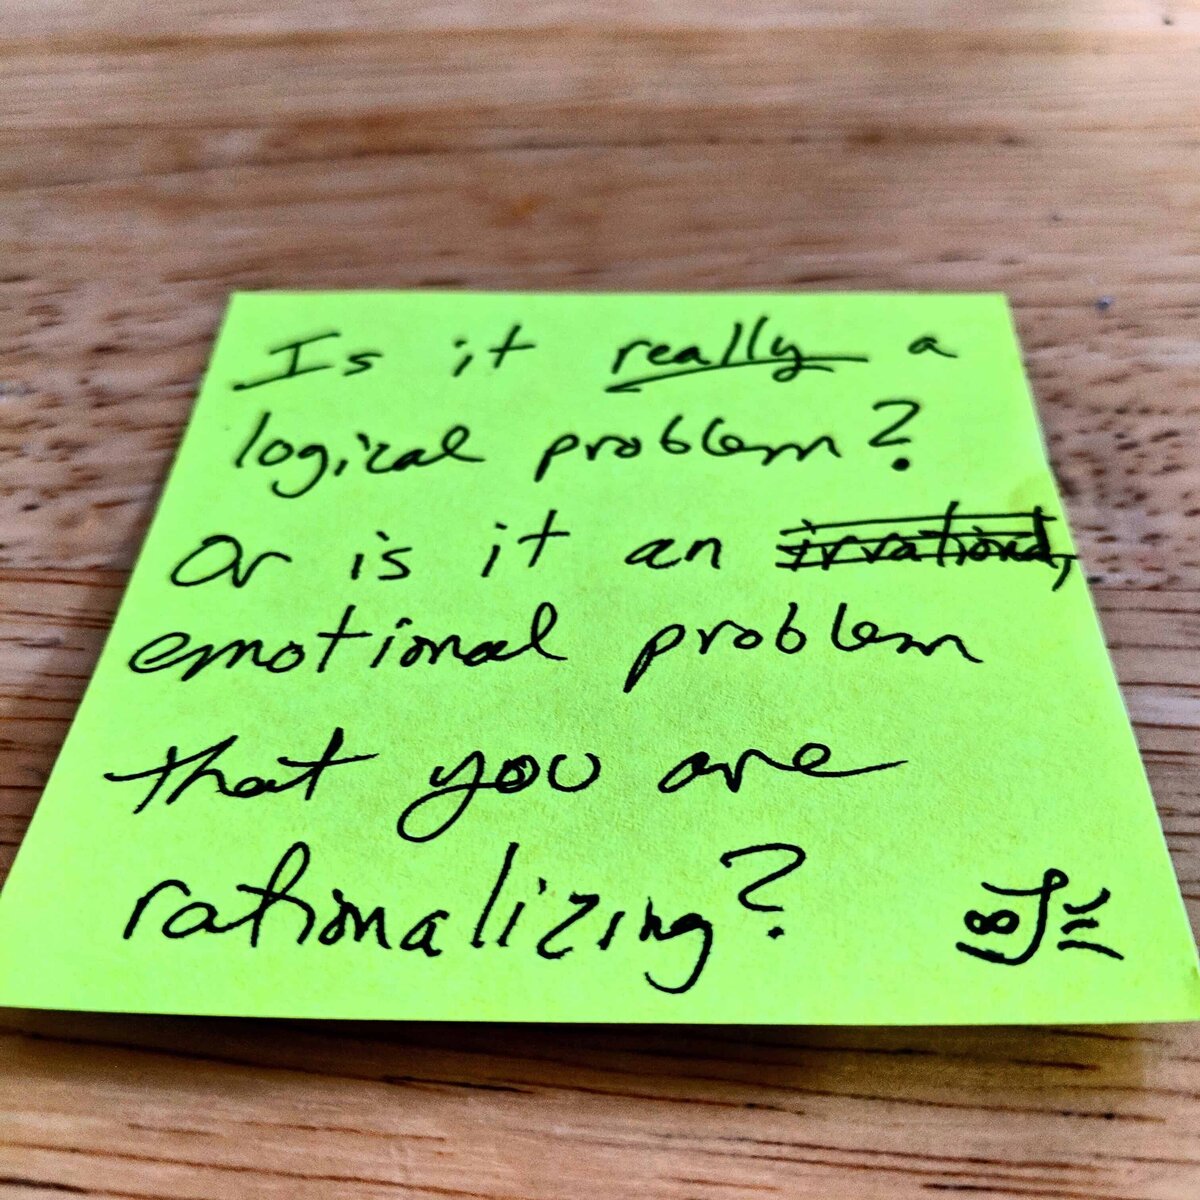 Is it really a
logical problem?
Or is it an irrational,
emotional problem
that you are
rationalizing?